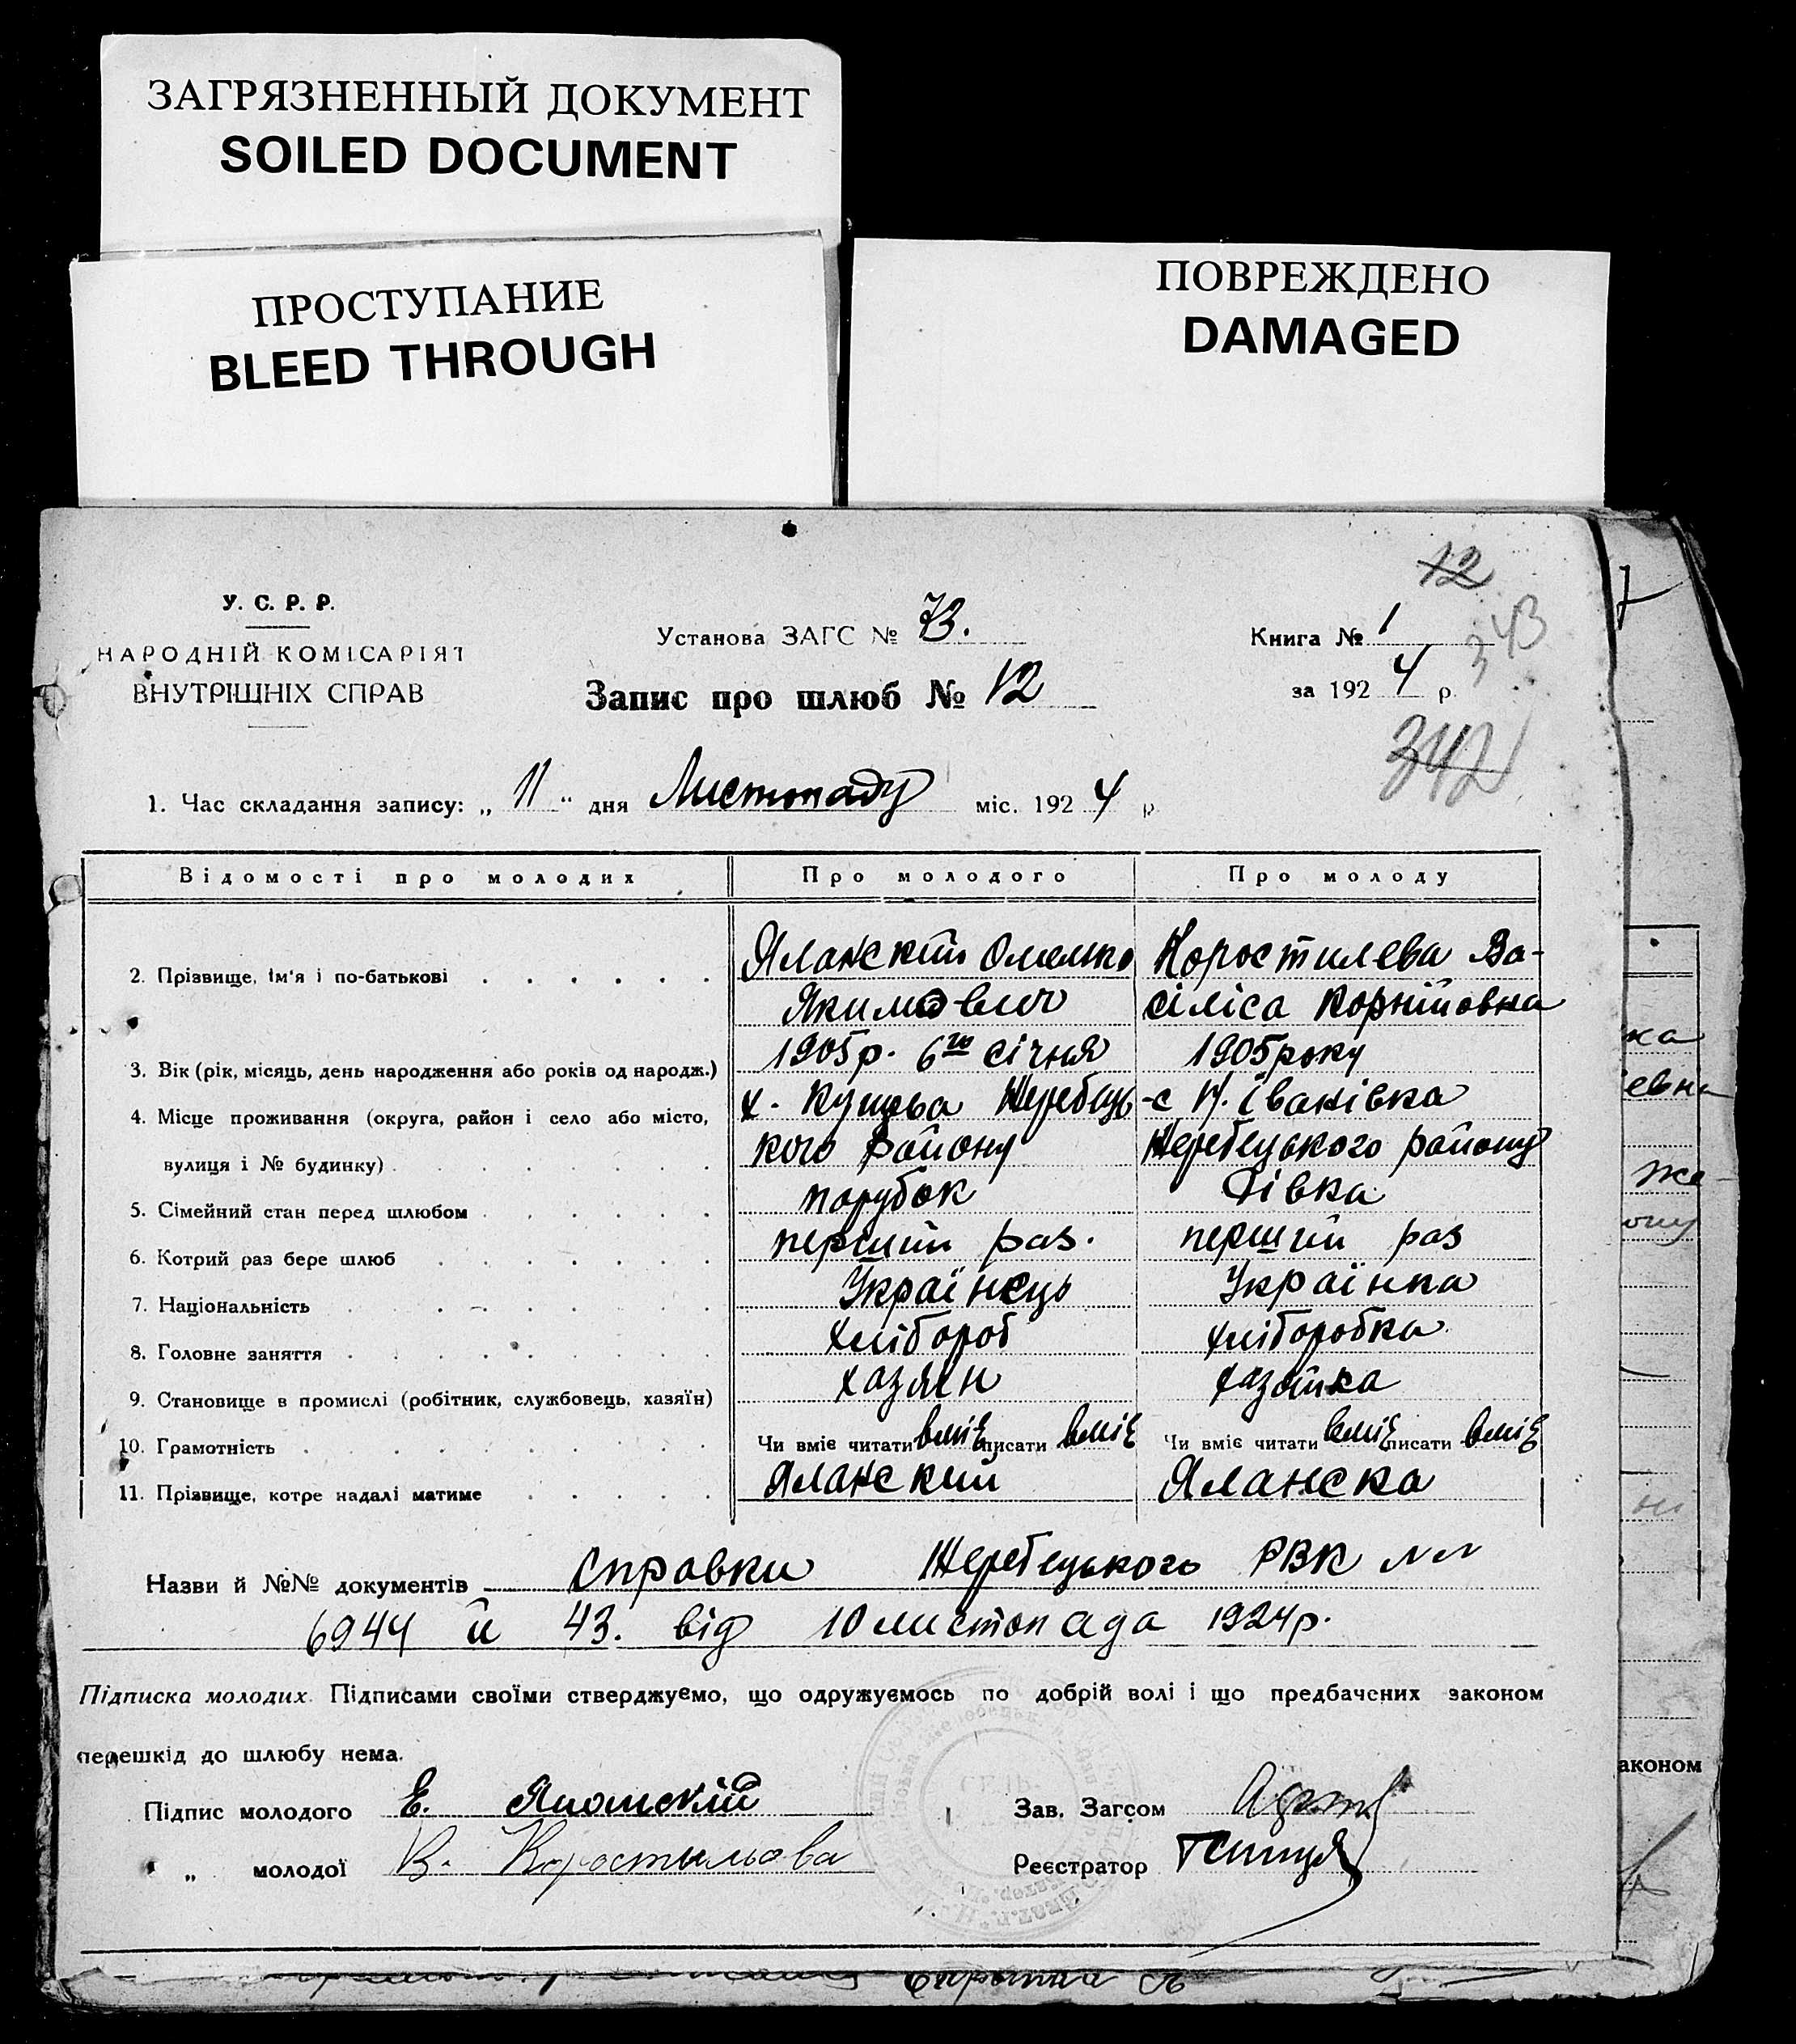 ЗАГРЯЗНЕННЫЙ ДОКУМЕНТ
SOILED DOCUMENT
ПРОСТУПАНИЕ
BLEED THROUGH
ПОВРЕЖДЕНО
DAMAGED
12
У. С. Р. Р.
НАРОДНІЙ КОМІСАРІЯТ
ВНУТРІШНІХ СПРАВ
Установа ЗАГС № 73.
Книга № 1
343
Запис про шлюб № 12
за 1924 р.
342
1. Час складання запису: „ 11 “ дня Листопаду міс. 1924 р.
Відомості про молодих Про молодого Про молоду
2. Прізвище, ім'я і по-батькові Яланский Омелько Коростилева Ва-
Якимович сіліса Корнійовна
3. Вік (рік, місяць, день народження або років од народж.) 1905р. 6го січня 1905 року
4. Місце проживання (округа, район і село або місто, х. Жеребець- с Н. Іванівка
вулиця і № будинку) кого району Жеребецького району
5. Сімейний стан перед шлюбом парубок Дівка
6. Котрий раз бере шлюб перший раз. перший раз
7. Національність Українець Українка
8. Головне заняття хлібороб хліборобка
9. Становище в промислі (робітник, службовець, хазяїн) хазяїн хазяйка
10. Грамотність Чи вміє читати вміє писати вміє Чи вміє читати вміє писати вміє
11. Прізвище, котре надалі матиме Яланский Яланска
Назви й №№ документів Справки Жеребецького РВК NN
6944 й 43. від 10 листопада 1924р.
Підписка молодих. Підписами своїми стверджуємо, що одружуємось по добрій волі і що предбачених законом
перешкід до шлюбу нема.
Підпис молодого Е. Яланский Зав. Загсом
„ молодої В. Коростильова Реєстратор
аконом